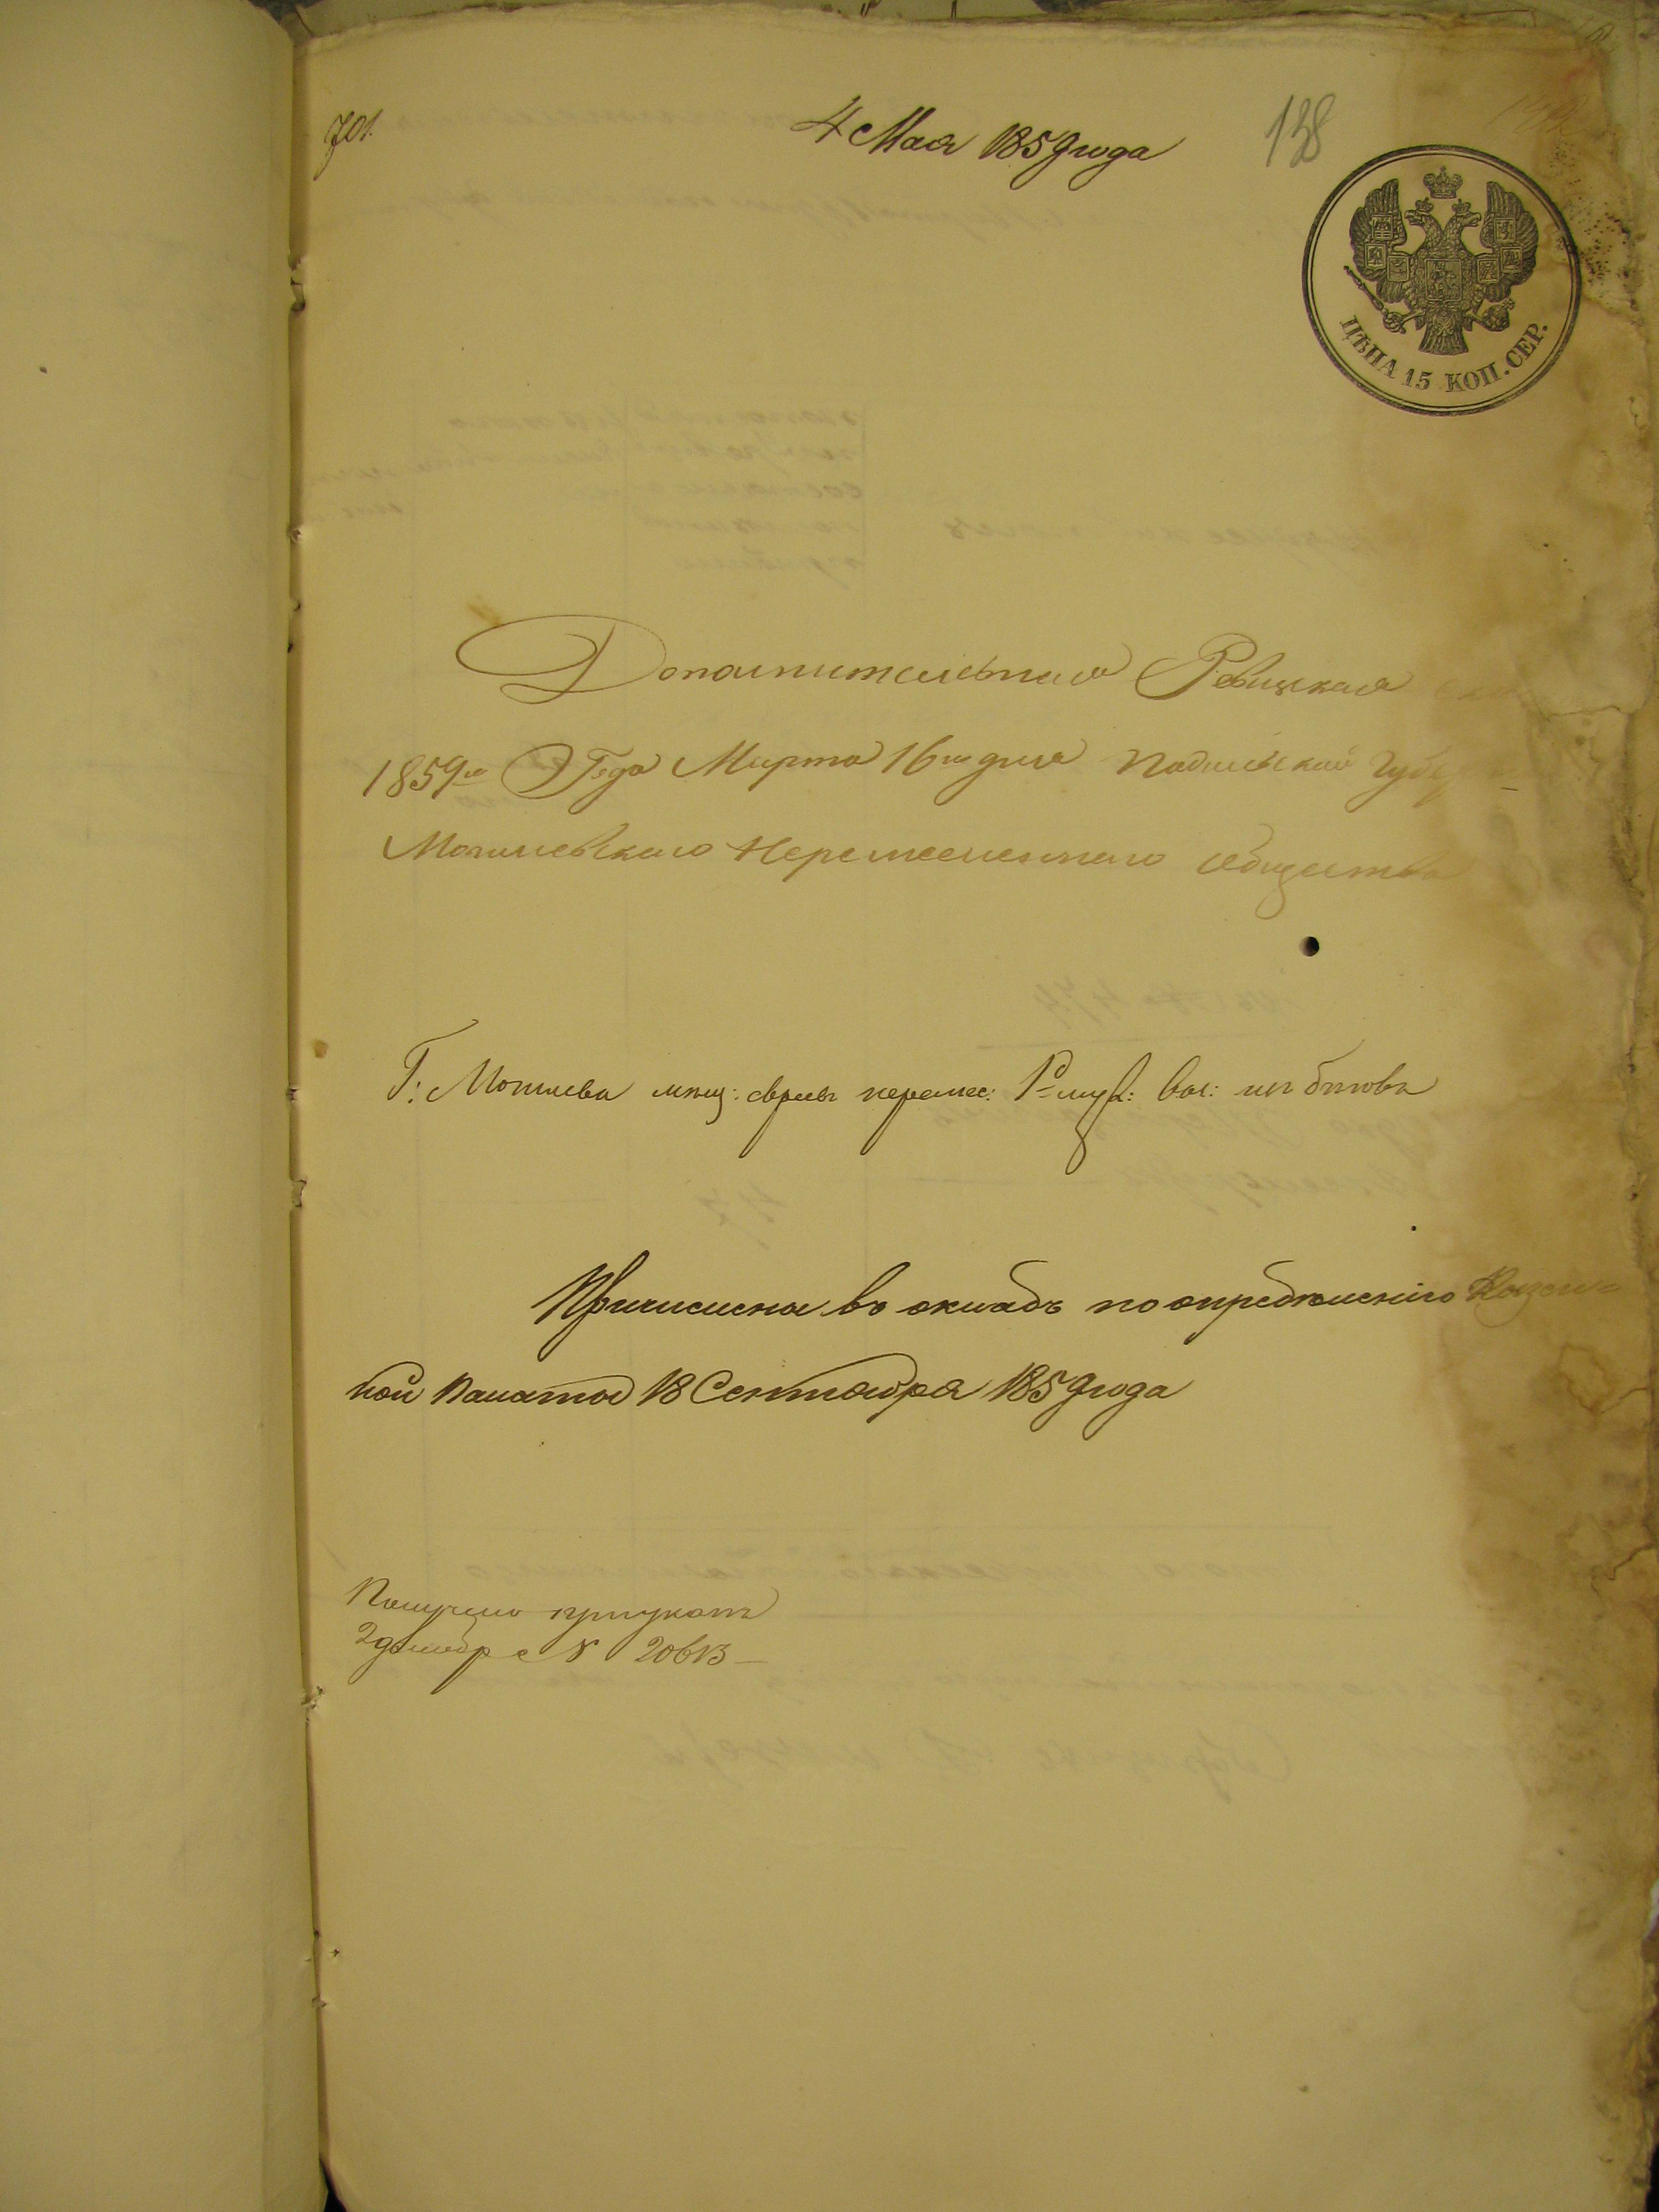 701.
4 Мая 1859 года
138
ЦѢНА 15 КОП. СЕР.
Дополнительная Ревизская
1859го Года Марта 16го дня Подольской Губер
Могилевскаго Еврейскаго общества
Г: Могилева мѣщ: евреевъ 1й муж:
Причислены въ окладъ по опредѣленію Казен-
ной Палаты 18 Сентября 1859 года
Получено
2 декабр № 20613